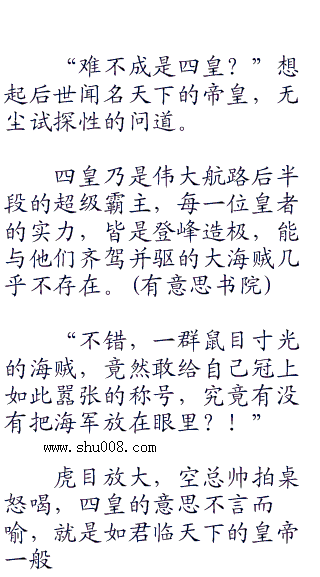 “难不成是四皇？”想
起后世闻名天下的帝皇，无
尘试探性的问道。
四皇乃是伟大航路后半
段的超级霸主，每一位皇者
的实力，皆是登峰造极，能
与他们齐驾并驱的大海贼几
乎不存在。(有意思书院)
“不错，一群鼠目寸光
的海贼，竟然敢给自己冠上
如此嚣张的称号，究竟有没
有把海军放在眼里？！”
www.shu008.com
虎目放大，空总帅拍桌
怒喝，四皇的意思不言而
喻，就是如君临天下的皇帝
一般